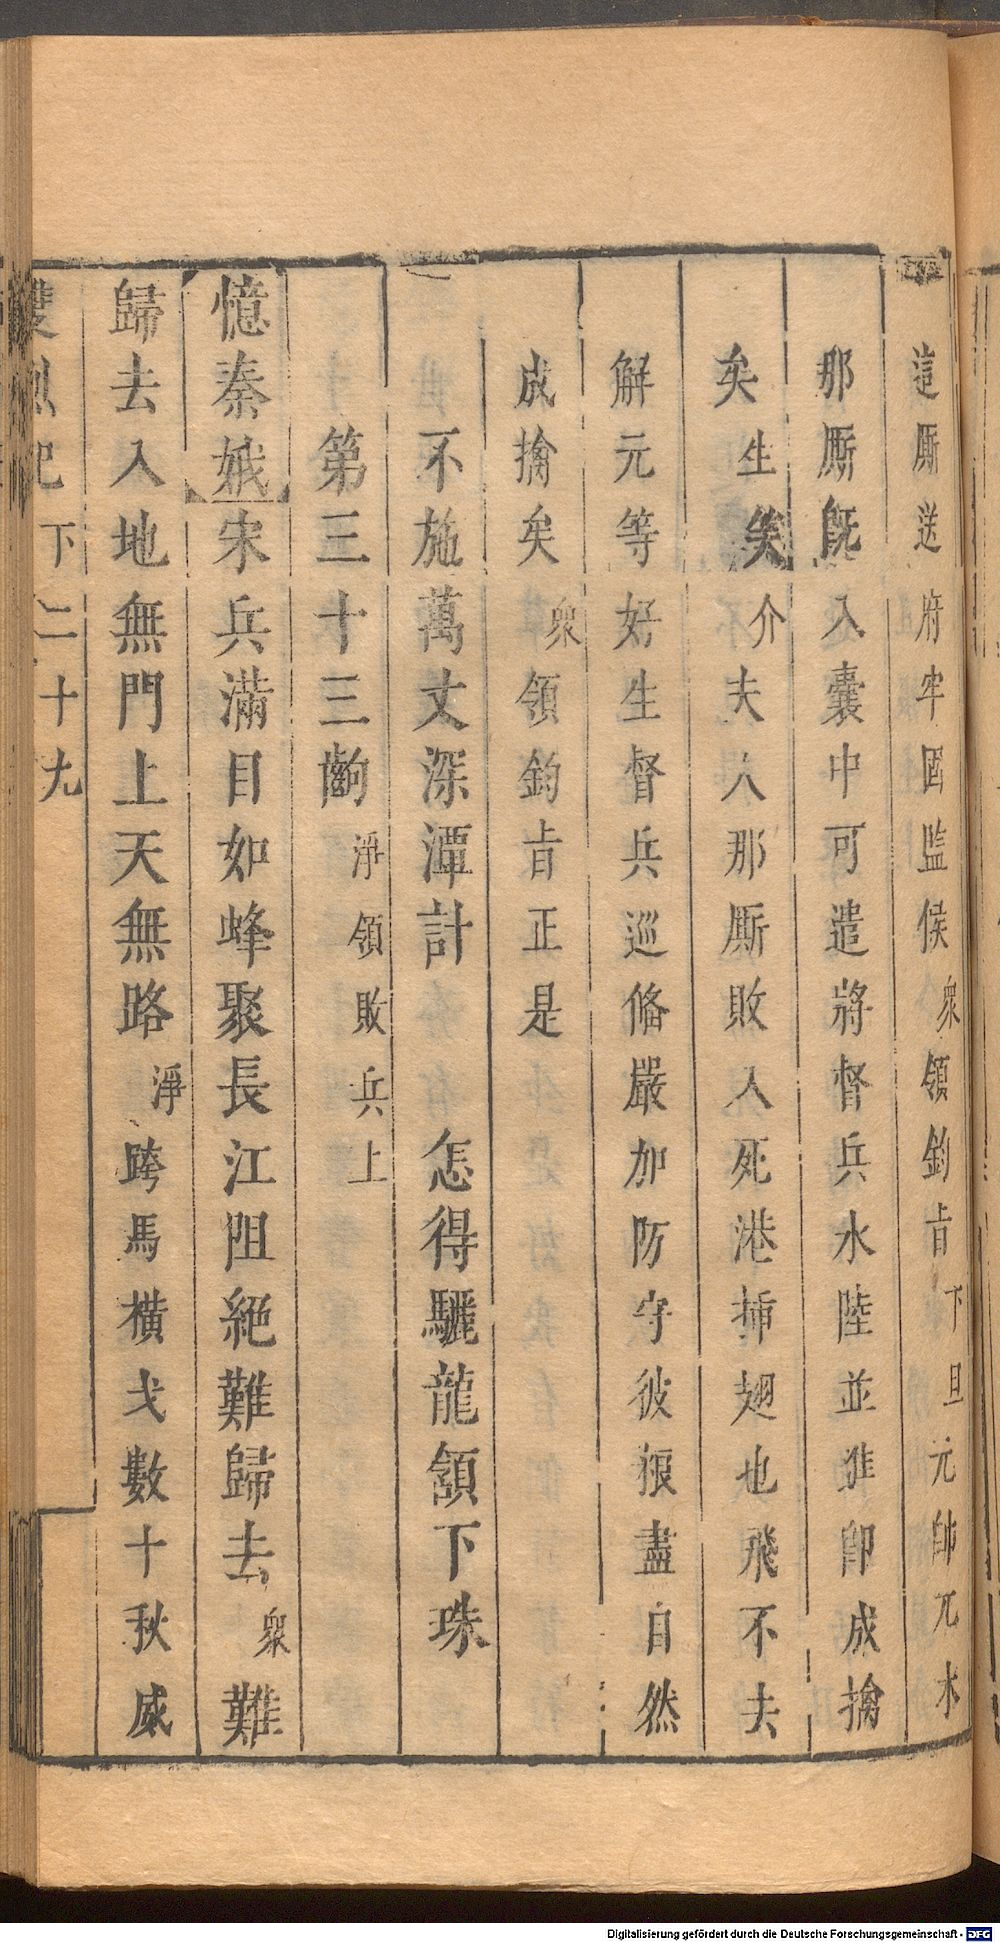 這厮送府牢固監候衆領鈞旨下旦元帥兀朮
那厮旣入囊中可遣將督兵水陸並進卽成擒
矣生笑介夫人那厮敗入死港揷翅也飛不去
解元等好生督兵巡脩嚴加防守彼粮盡自然
成擒矣衆領鈞旨正是
不施萬丈深潭計 怎得驪龍頷下珠
第三十三齣淨領敗兵上
憶秦娥宋兵滿目如蜂聚長江阻絕難歸去衆難
歸去入地無門上天無路淨跨馬橫戈數十秋威
雙烈記 下 二十九
Digitalisierung gefördert durch die Deutsche Forschungsgemeinschaft - DFG